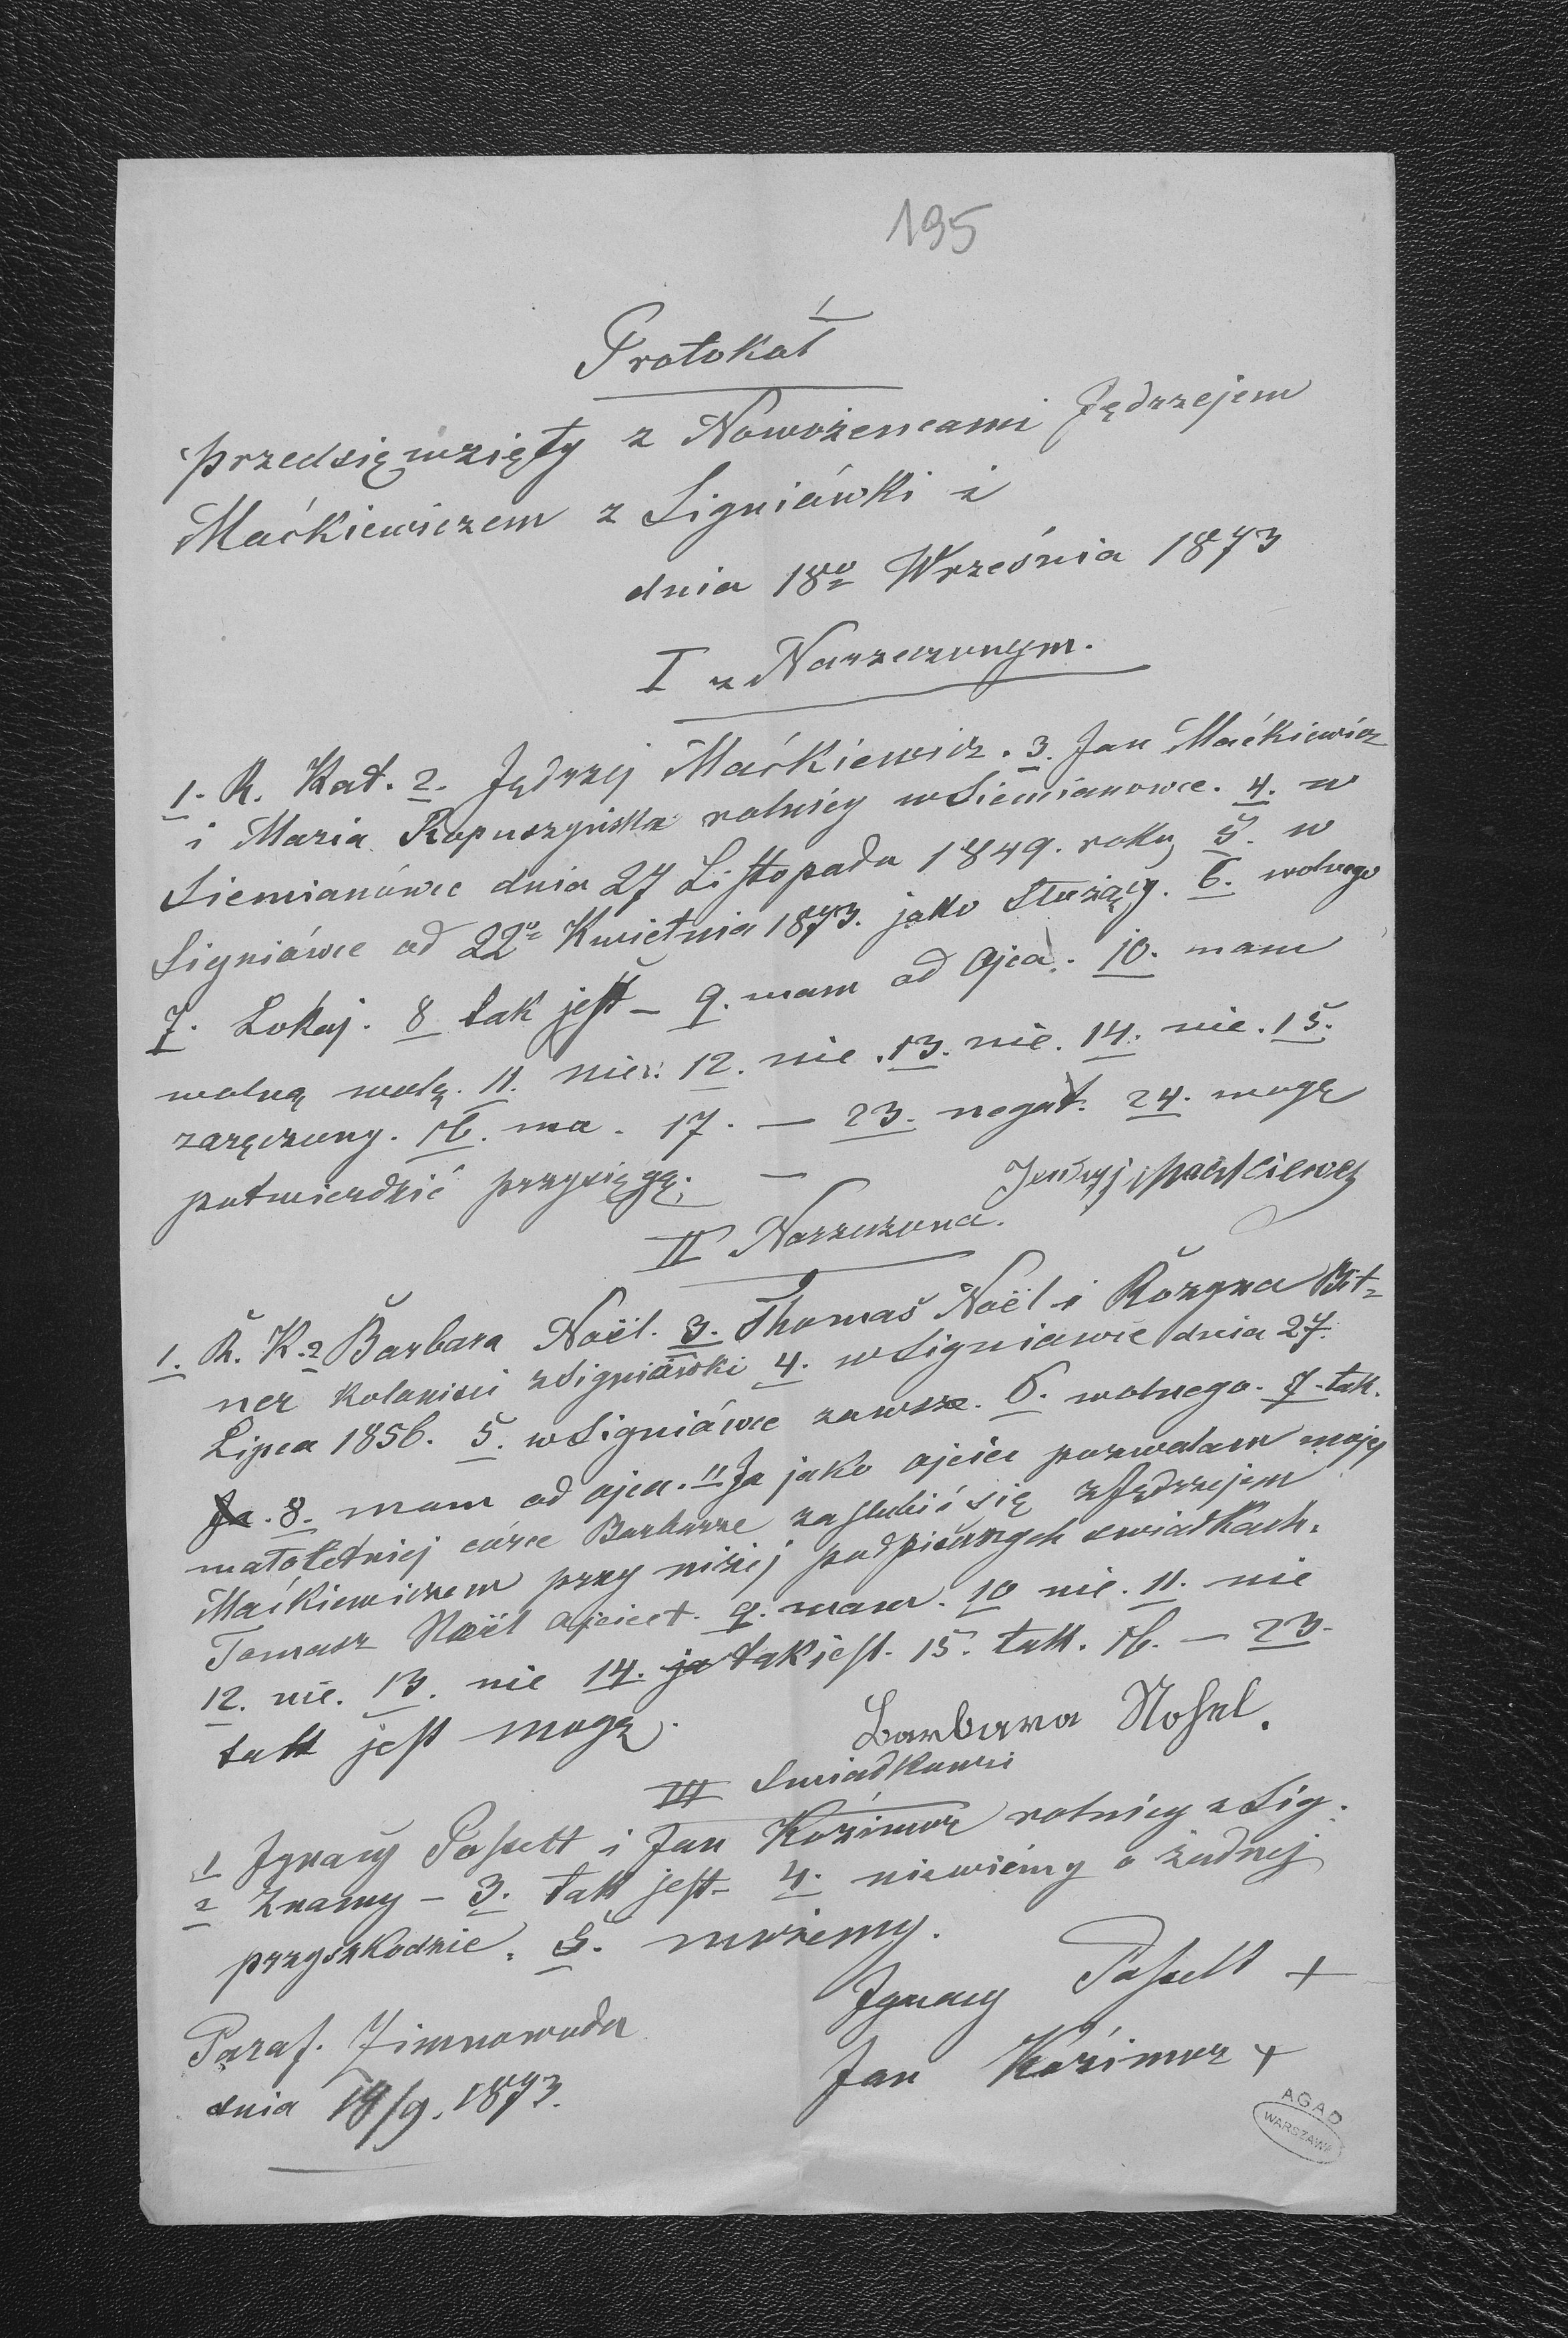 195
Protokół
przedsięwzięty z Nowożeńcami Jędrzejem
Maćkiewiczem z Signiówki i
dnia 18º Września 1873
I z Narzeczonym.
1. R. Kat. 2. Jędrzej Maćkiewicz. 3. Jan Maćkiewicz
i Maria Ropuszyńska rolnicy w Siemianowce. 4. w
Siemianówce dnia 27 Listopada 1849. roku 5. w
Signiówce od 22º Kwietnia 1873. jako służący. 6. wolnego
7. Lokaj. 8 tak jest – 9. mam od Ojca. 10. mam
wolną wolę. 11. nie. 12. nie. 13. nie. 14. nie. 15.
zaręczony. 16. ma. 17. — 23. negat. 24. mogę
potwierdzić przysięgą. —
Jędrzej Maćkiewicz
II Narzeczona.
1. R. K. 2 Barbara Noël. 3. Thomas Noël i Rozyna Bit=
ner koloniści z Signiówki 4. w Signiówce dnia 27.
Lipca 1856. 5. w Signiówce zawsze. 6. wolnego. 7. tak.
Ja. 8. mam od ojca. "Ja jako ojciec pozwalam mojej
małoletniej córce Barbarze zaślubić się z Jędrzejem
Maćkiewiczem przy niżej podpisanych swiadkach.
Tomasz Noël ojciec +. 9. mam. 10 nie. 11. nie
12. nie. 13. nie 14. ja tak jest. 15. tak. 16. — 23.
tak jest mogę.
Barbara Nohel.
III Swiadkowie
1 Ignacy Passelt i Jan Kozimor rolnicy z Sig.
2 Znamy – 3. tak jest – 4. niewiémy o żadnej
przyszkodzie. 5. możemy.
Ignacy Passelt +
Jan Kozimor +
Paraf. Zimnowoda
dnia 18/9. 1873.
AGAD
WARSZAWA